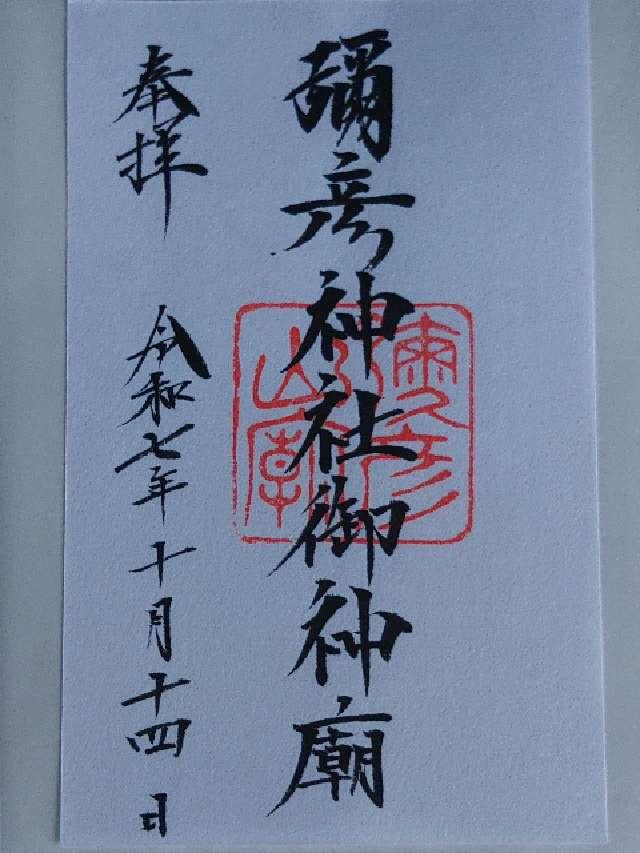 彌彦神社御神廟
奉拝
令和七年十月十四日